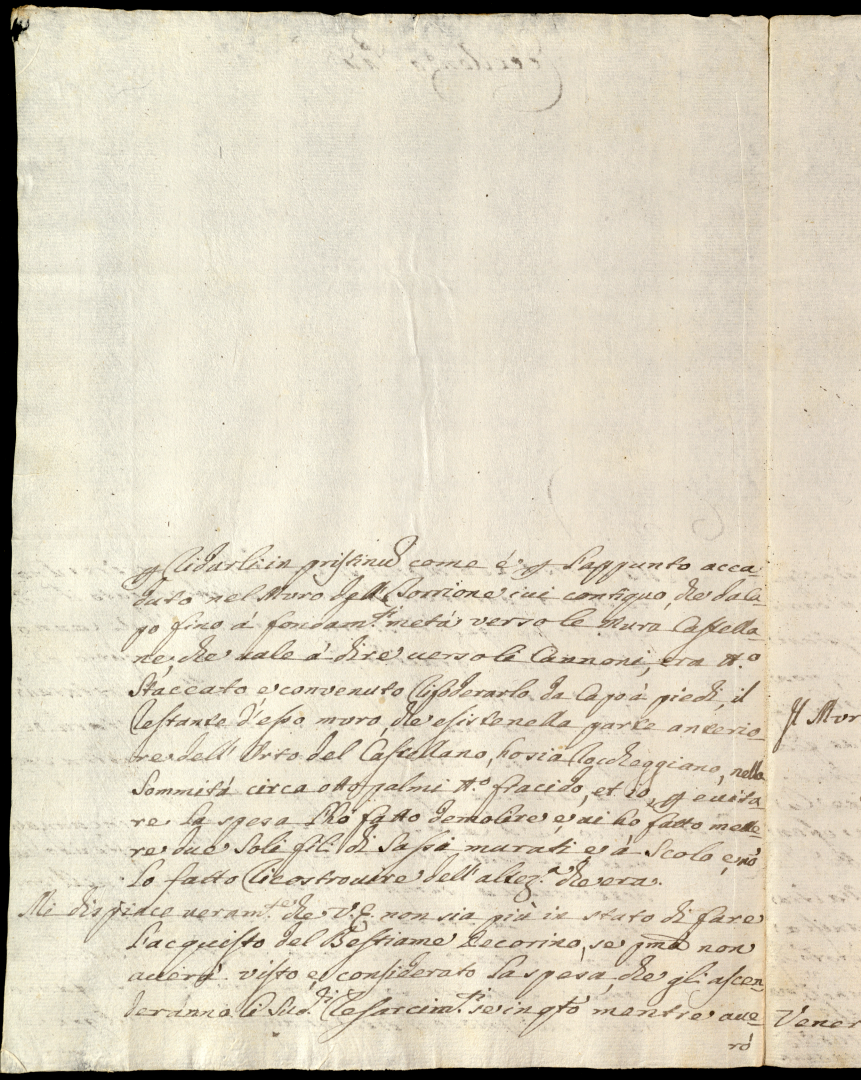 ꝑ Ridurli in pristinũ come è ꝑ l'appunto acca-
duto nel Muro del Torrione ivi contiguo, che da Ca-
po fino à fondam.ti metà verso le Mura Castella-
ne, che vale à dire verso li Cannoni, era tt.o
Staccato e convenuto Rifoderarlo da Capo à piedi, il
restante d'esso muro, che esiste nella parte anterio-
re dell'Orto del Castellano, ò sia Rocheggiano, nella
Sommità circa otto palmi tt.o fracido, et io, ꝑ evita-
re la spesa l'hò fatto demolire, e vi hò fatto mette-
re due soli fili di Sassi murati, e à Scolo, e nõ
lo fatto Ricostrovire dell'altez.a che era.
Mi dispiace veram.te che V.E. non sia più in stato di fare
l'acquisto del Bestiame Pecorino, se pma non
averà visto, e considerato la spesa, che gli ascen-
deranno li Sud.ti Resarcim.ti, se in qto mentre ave-
rò
Il Mur
Vener